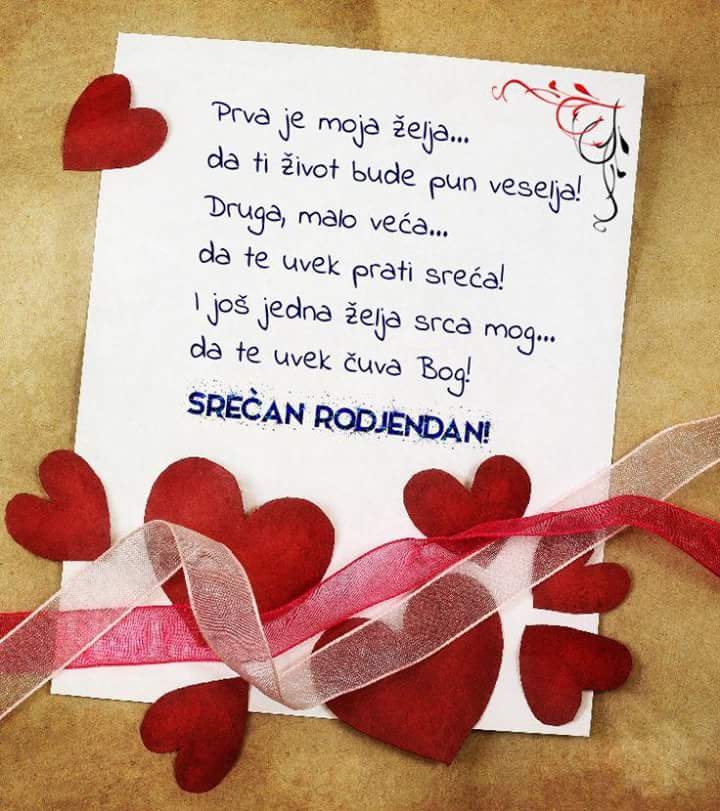 Prva je moja želja...
da ti život bude pun veselja!
Druga, malo veća...
da te uvek prati sreća!
I još jedna želja srca mog...
da te uvek čuva Bog!
SREĆAN RODJENDAN!